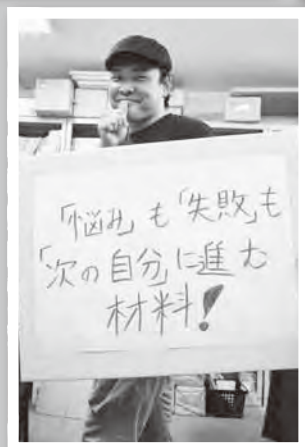 「悩み」も「失敗」も
「次の自分」に進む
材料!